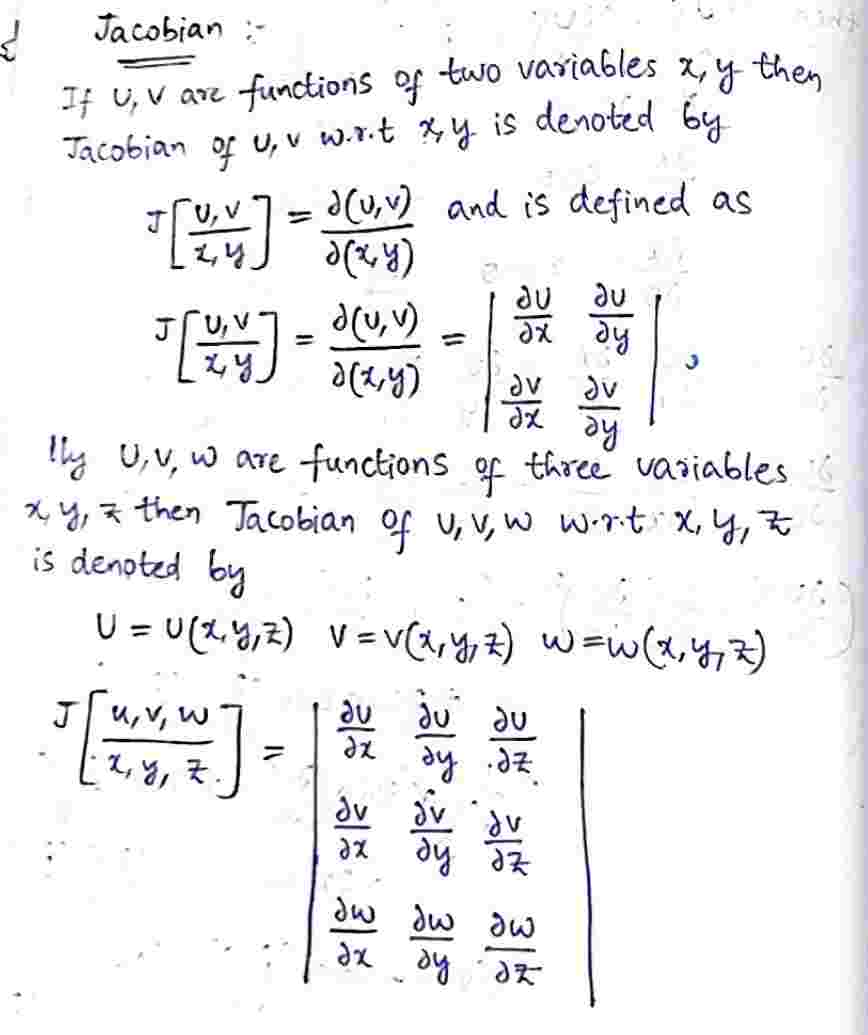 Jacobian :-
If u, v are functions of two variables x, y then
Jacobian of u, v w.r.t x, y is denoted by
J[u, v / x, y] = ∂(u,v) / ∂(x,y) and is defined as
J[u, v / x, y] = ∂(u,v) / ∂(x,y) = | ∂u/∂x ∂u/∂y |
| ∂v/∂x ∂v/∂y | ,
llly u, v, w are functions of three variables
x, y, z then Jacobian of u, v, w w.r.t. x, y, z
is denoted by
u = u(x,y,z) v = v(x,y,z) w = w(x,y,z)
J[u, v, w / x, y, z] = | ∂u/∂x ∂u/∂y ∂u/∂z |
| ∂v/∂x ∂v/∂y ∂v/∂z |
| ∂w/∂x ∂w/∂y ∂w/∂z |